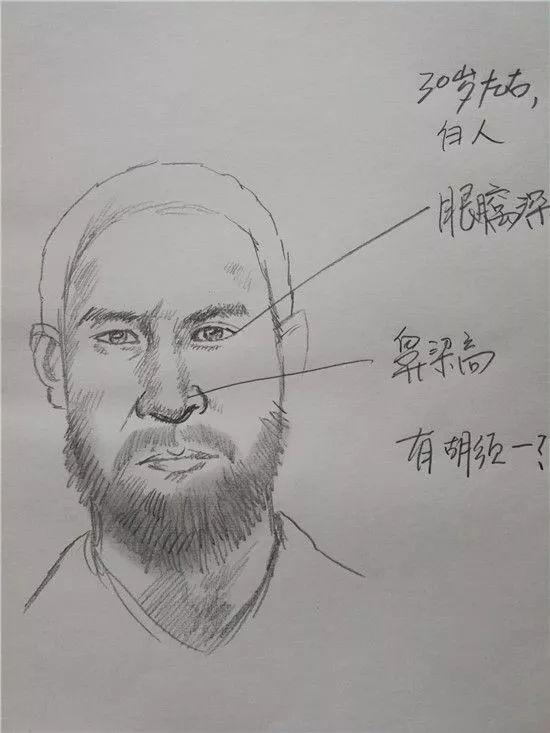 30岁左右,
白人
眼腔深
鼻梁高
有胡须一?